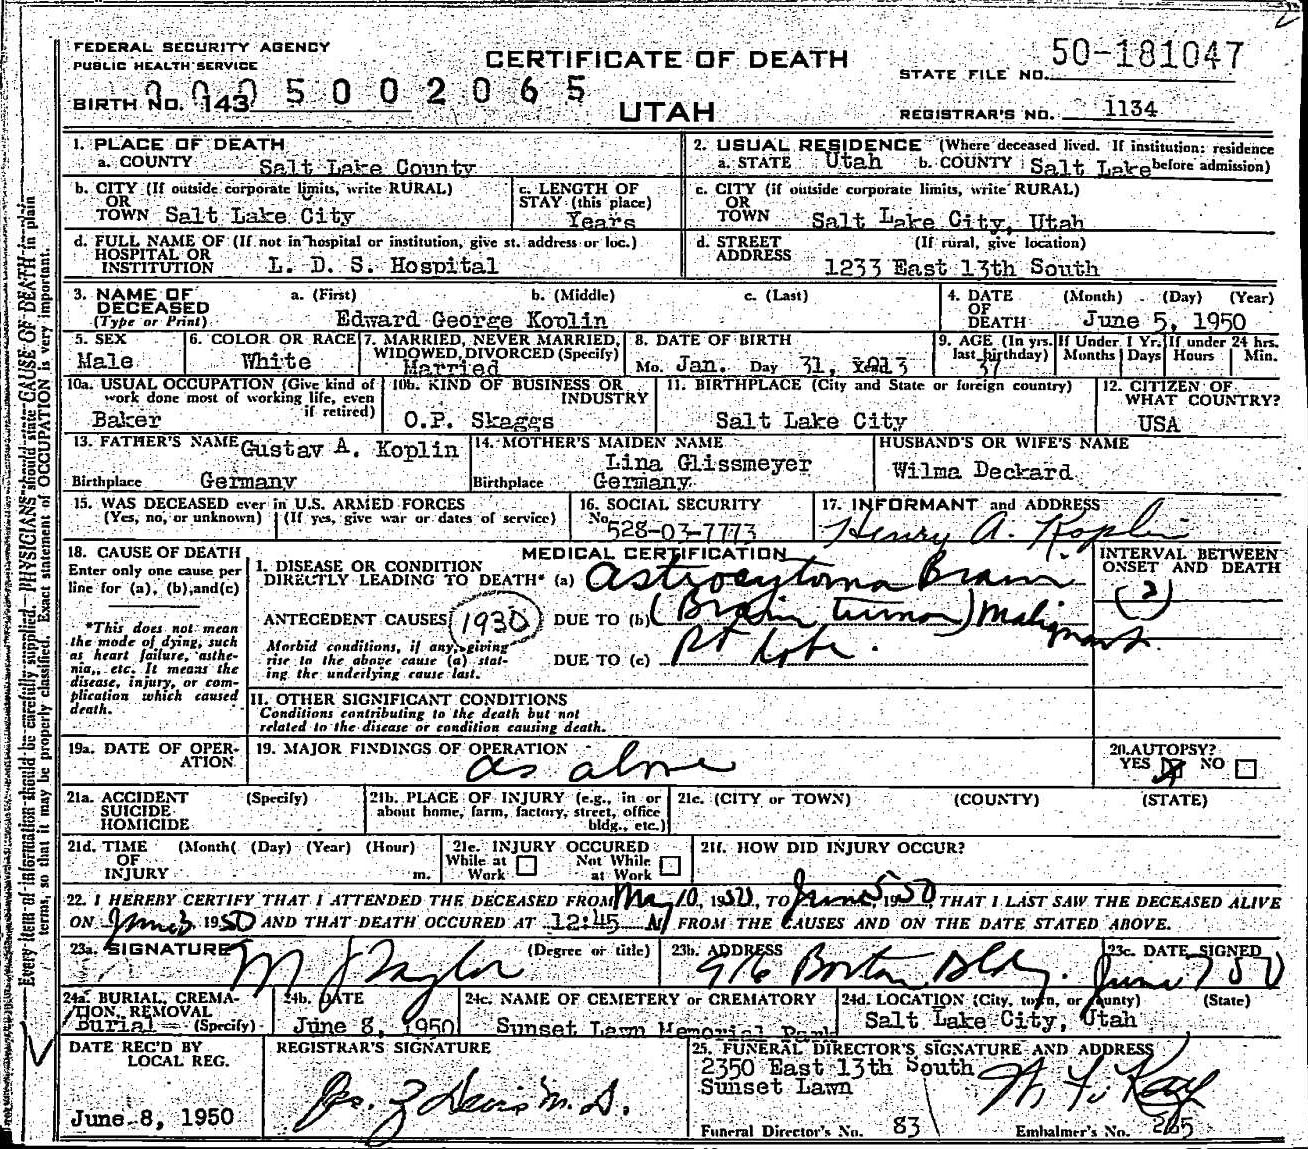 FEDERAL SECURITY AGENCY
PUBLIC HEALTH SERVICE
CERTIFICATE OF DEATH
STATE FILE NO. 50-181047
0005002065
BIRTH NO. 143
UTAH
REGISTRAR'S NO. 1134
1. PLACE OF DEATH
a. COUNTY Salt Lake County
2. USUAL RESIDENCE (Where deceased lived. If institution: residence before admission)
a. STATE Utah b. COUNTY Salt Lake
b. CITY (If outside corporate limits, write RURAL)
OR
TOWN Salt Lake City
c. LENGTH OF
STAY (this place)
Years
c. CITY (if outside corporate limits, write RURAL)
OR
TOWN Salt Lake City, Utah
d. FULL NAME OF (If not in hospital or institution, give st. address or loc.)
HOSPITAL OR
INSTITUTION L. D. S. Hospital
d. STREET (If rural, give location)
ADDRESS
1233 East 13th South
3. NAME OF a. (First) b. (Middle) c. (Last)
DECEASED
(Type or Print) Edward George Koplin
4. DATE (Month) (Day) (Year)
OF
DEATH June 5, 1950
5. SEX
Male
6. COLOR OR RACE
White
7. MARRIED, NEVER MARRIED,
WIDOWED, DIVORCED (Specify)
Married
8. DATE OF BIRTH
Mo. Jan. Day 31, Year 1913
9. AGE (In yrs. last birthday) If Under 1 Yr. If under 24 hrs.
37 Months Days Hours Min.
10a. USUAL OCCUPATION (Give kind of
work done most of working life, even
if retired)
Baker
10b. KIND OF BUSINESS OR
INDUSTRY
O.P. Skaggs
11. BIRTHPLACE (City and State or foreign country)
Salt Lake City
12. CITIZEN OF
WHAT COUNTRY?
USA
13. FATHER'S NAME Gustav A. Koplin
Birthplace Germany
14. MOTHER'S MAIDEN NAME
Lina Glissmeyer
Birthplace Germany
HUSBAND'S OR WIFE'S NAME
Wilma Deckard
15. WAS DECEASED ever in U.S. ARMED FORCES
(Yes, no, or unknown) (If yes, give war or dates of service)
16. SOCIAL SECURITY
No. 528-03-7773
17. INFORMANT and ADDRESS
Henry A. Koplin
18. CAUSE OF DEATH
Enter only one cause per
line for (a), (b), and (c)
*This does not mean
the mode of dying, such
as heart failure, asthe-
nia, etc. It means the
disease, injury, or com-
plication which caused
death.
MEDICAL CERTIFICATION
INTERVAL BETWEEN
ONSET AND DEATH
I. DISEASE OR CONDITION
DIRECTLY LEADING TO DEATH* (a) Astrocytoma Brain
(2)
ANTECEDENT CAUSES 1930 DUE TO (b) (Brain tumor) Malignant
Morbid conditions, if any, giving
rise to the above cause (a) stat-
ing the underlying cause last.
DUE TO (c) Rt Lobe.
II. OTHER SIGNIFICANT CONDITIONS
Conditions contributing to the death but not
related to the disease or condition causing death.
19a. DATE OF OPER-
ATION
19. MAJOR FINDINGS OF OPERATION
as above
20. AUTOPSY?
YES NO
21a. ACCIDENT (Specify)
SUICIDE
HOMICIDE
21b. PLACE OF INJURY (e.g., in or
about home, farm, factory, street, office
bldg., etc.)
21c. (CITY or TOWN) (COUNTY) (STATE)
21d. TIME (Month( (Day) (Year) (Hour)
OF
INJURY m.
21e. INJURY OCCURED
While at Work Not While at Work
21f. HOW DID INJURY OCCUR?
22. I HEREBY CERTIFY THAT I ATTENDED THE DECEASED FROM May 10, 1950, TO June 5 1950 THAT I LAST SAW THE DECEASED ALIVE
ON June 3 1950 AND THAT DEATH OCCURED AT 12:45 M FROM THE CAUSES AND ON THE DATE STATED ABOVE.
23a. SIGNATURE (Degree or title)
M J Taylor
23b. ADDRESS
916 Boston Bldg.
23c. DATE SIGNED
June 7 50
24a. BURIAL, CREMA-
TION, REMOVAL
Burial (Specify)
24b. DATE
June 8, 1950
24c. NAME OF CEMETERY OR CREMATORY
Sunset Lawn Memorial Park
24d. LOCATION (City, town, or county) (State)
Salt Lake City, Utah
DATE REC'D BY
LOCAL REG.
June 8, 1950
REGISTRAR'S SIGNATURE
25. FUNERAL DIRECTOR'S SIGNATURE AND ADDRESS
2350 East 13th South
Sunset Lawn
Funeral Director's No. 83 Embalmer's No. 265
Every item of information should be carefully supplied. PHYSICIANS should state CAUSE OF DEATH in plain
terms, so that it may be properly classified. Exact statement of OCCUPATION is very important.